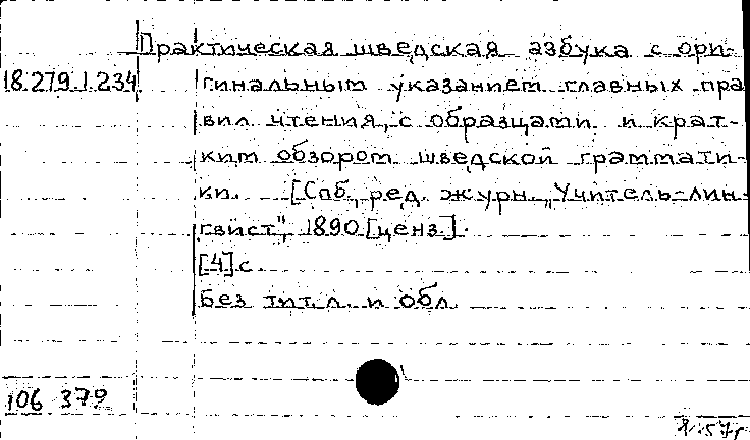 Практическая шведская азбука с ори-
18.279.1.234
гинальным указанием главных пра
вил чтения, с образцами и крат-
ким обзором шведской граммати-
ки. [Спб., ред. журн. „Учитель-лин-
гвист", 1890 [ценз.].
[4] с.
Без тит. л. и обл.
106 379